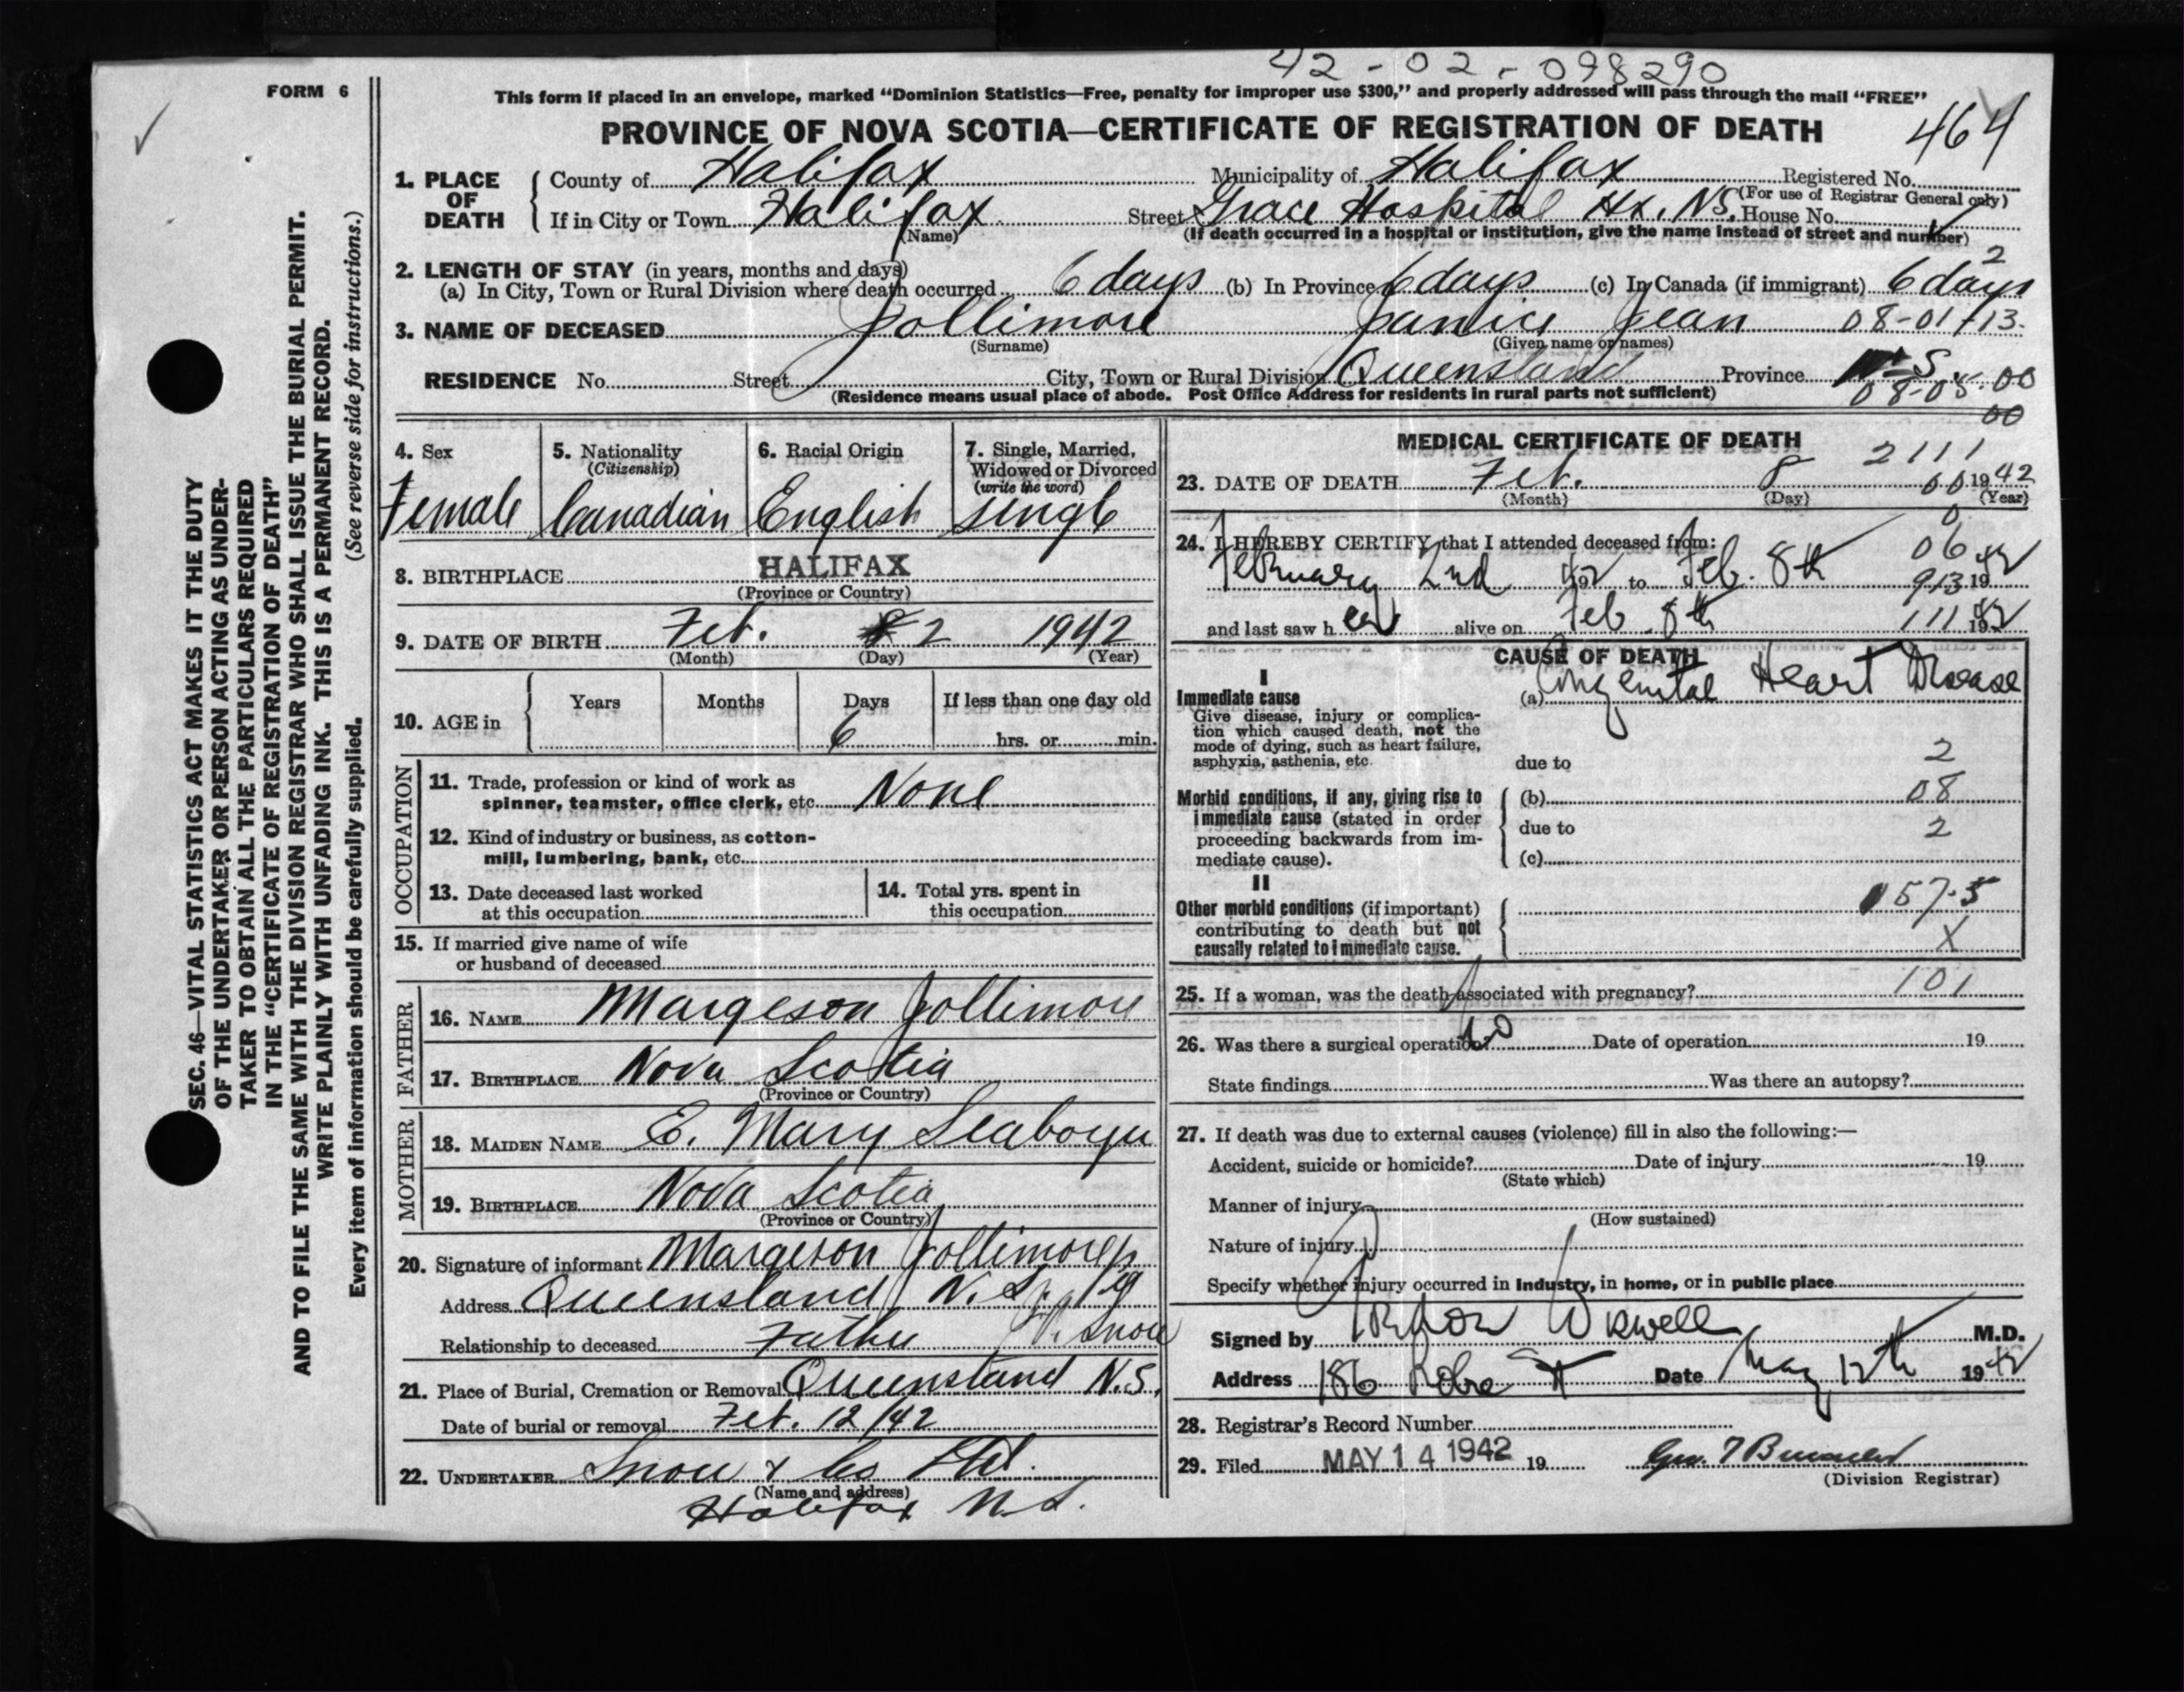 42-02-098290
FORM 6
This form if placed in an envelope, marked "Dominion Statistics—Free, penalty for improper use $300," and properly addressed will pass through the mail "FREE"
PROVINCE OF NOVA SCOTIA—CERTIFICATE OF REGISTRATION OF DEATH
464
1. PLACE OF DEATH
County of Halifax Municipality of Halifax Registered No.
(For use of Registrar General only)
If in City or Town Halifax Street Grace Hospital Hx. N.S. House No.
(Name) (If death occurred in a hospital or institution, give the name instead of street and number)
2
2. LENGTH OF STAY (in years, months and days)
(a) In City, Town or Rural Division where death occurred 6 days (b) In Province 6 days (c) In Canada (if immigrant) 6 days
3. NAME OF DECEASED Jollimore Janice Jean 08-01-13
(Surname) (Given name or names)
RESIDENCE No. Street City, Town or Rural Division Queensland Province N.S.
08-05-00
(Residence means usual place of abode. Post Office Address for residents in rural parts not sufficient)
00
4. Sex
Female
5. Nationality
(Citizenship)
Canadian
6. Racial Origin
English
7. Single, Married, Widowed or Divorced
(write the word)
Single
8. BIRTHPLACE HALIFAX
(Province or Country)
9. DATE OF BIRTH Feb. 2 1942
(Month) (Day) (Year)
10. AGE in
Years Months Days If less than one day old
6 hrs. or min.
OCCUPATION
11. Trade, profession or kind of work as
spinner, teamster, office clerk, etc. None
12. Kind of industry or business, as cotton-
mill, lumbering, bank, etc.
13. Date deceased last worked
at this occupation
14. Total yrs. spent in
this occupation
15. If married give name of wife
or husband of deceased
FATHER
16. NAME Margeson Jollimore
17. BIRTHPLACE Nova Scotia
(Province or Country)
MOTHER
18. MAIDEN NAME E. Mary Seaboyer
19. BIRTHPLACE Nova Scotia
(Province or Country)
20. Signature of informant Margeson Jollimore
Address Queensland N.S.
Relationship to deceased Father Snow
21. Place of Burial, Cremation or Removal Queensland N.S.
Date of burial or removal Feb. 12/42
22. UNDERTAKER Snow & Co Ltd.
(Name and address)
Halifax N.S.
MEDICAL CERTIFICATE OF DEATH
2111
23. DATE OF DEATH Feb. 8 1942
(Month) (Day) (Year)
24. I HEREBY CERTIFY that I attended deceased from:
06
February 2nd 1942 to Feb. 8th 1942
913
and last saw her alive on Feb. 8th 1942
111
CAUSE OF DEATH
I
Immediate cause
Give disease, injury or complica-
tion which caused death, not the
mode of dying, such as heart failure,
asphyxia, asthenia, etc.
(a) Congenital Heart Disease
2
due to
Morbid conditions, if any, giving rise to
immediate cause (stated in order
proceeding backwards from im-
mediate cause).
(b) 08
due to 2
(c)
II
Other morbid conditions (if important)
contributing to death but not
causally related to immediate cause.
157.5
X
25. If a woman, was the death associated with pregnancy? 101
26. Was there a surgical operation? No Date of operation 19
State findings Was there an autopsy?
27. If death was due to external causes (violence) fill in also the following:—
Accident, suicide or homicide? Date of injury 19
(State which)
Manner of injury
(How sustained)
Nature of injury
Specify whether injury occurred in industry, in home, or in public place
Signed by Gordon Wiswell M.D.
Address 186 Robie St Date May 12th 1942
28. Registrar's Record Number
29. Filed MAY 14 1942 19
(Division Registrar)
SEC. 46—VITAL STATISTICS ACT MAKES IT THE DUTY
OF THE UNDERTAKER OR PERSON ACTING AS UNDER-
TAKER TO OBTAIN ALL THE PARTICULARS REQUIRED
IN THE "CERTIFICATE OF REGISTRATION OF DEATH"
AND TO FILE THE SAME WITH THE DIVISION REGISTRAR WHO SHALL ISSUE THE BURIAL PERMIT.
WRITE PLAINLY WITH UNFADING INK. THIS IS A PERMANENT RECORD.
Every item of information should be carefully supplied. (See reverse side for instructions.)